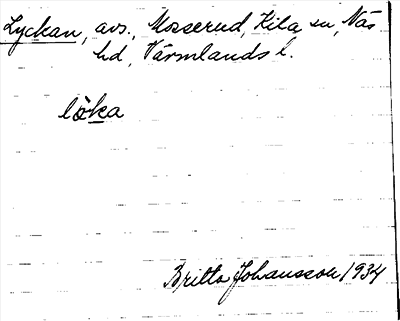 Lyckan, avs., Mosserud, Kila sn, Näs
hd, Värmlands l.
lò̈ka
Britta Johansson 1934